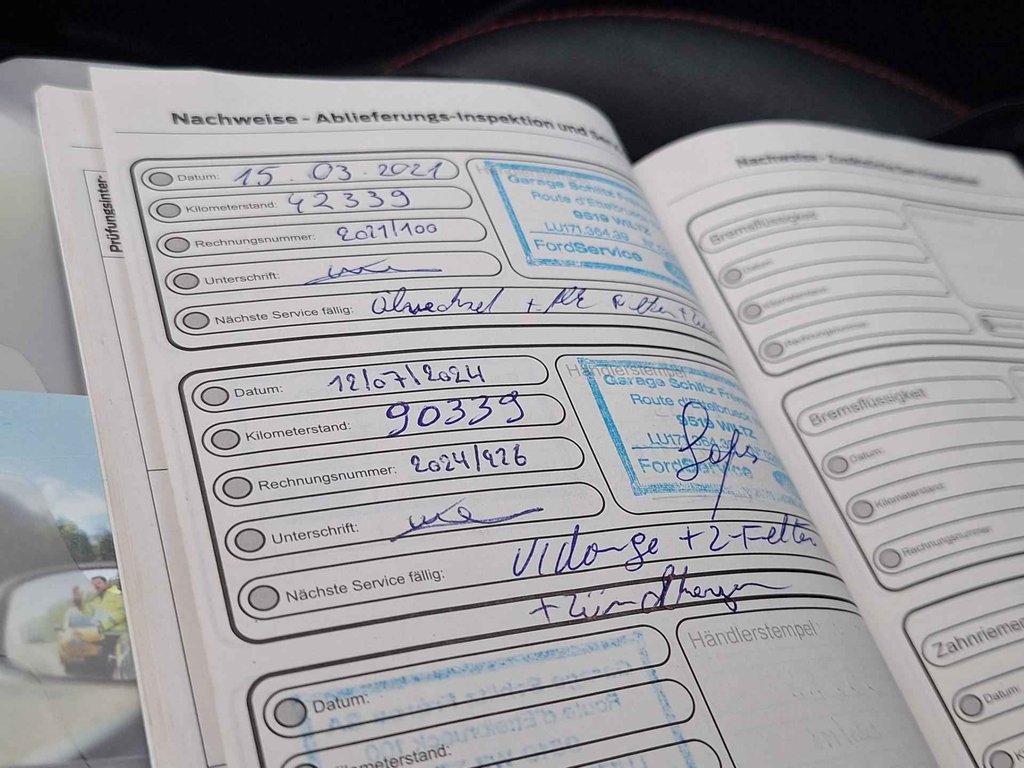 Nachweise - Ablieferungs-Inspektion und
Prüfungsinter-
Datum: 15.03.2021
Kilometerstand: 42339
Rechnungsnummer: 2021/100
Unterschrift:
Nächste Service fällig: Ölwechsel +
Garage Schiltz Frères
Route d'Ettelbruck
9519 WILTZ
LU171.364.39
FordService
Datum: 12/07/2024
Kilometerstand: 90339
Rechnungsnummer: 2024/226
Unterschrift:
Nächste Service fällig: Vidange + 2-Filter
+ Zündkerzen
Händlerstempel
Garage Schiltz Frères
Route d'Ettelbruck
9519 WILTZ
FordService
Datum:
Kilometerstand:
Händlerstempel
Nachweise -
Bremsflüssigkeit
Datum:
Kilometerstand:
Rechnungsnummer:
Bremsflüssigkeit
Datum:
Kilometerstand:
Rechnungsnummer:
Zahnriemen
Datum: